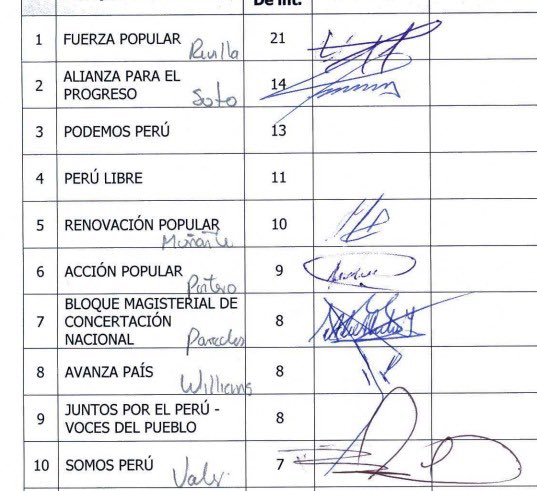 De int.
1 FUERZA POPULAR Revilla 21
2 ALIANZA PARA EL
PROGRESO Soto 14
3 PODEMOS PERÚ 13
4 PERÚ LIBRE 11
5 RENOVACIÓN POPULAR 10
Muñante
6 ACCIÓN POPULAR Portero 9
7 BLOQUE MAGISTERIAL DE
CONCERTACIÓN
NACIONAL Paredes 8
8 AVANZA PAÍS Williams 8
9 JUNTOS POR EL PERÚ -
VOCES DEL PUEBLO 8
10 SOMOS PERÚ 7